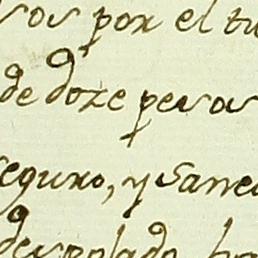 sos por el tu
de doze pesos
seguro, y sanea
despolado